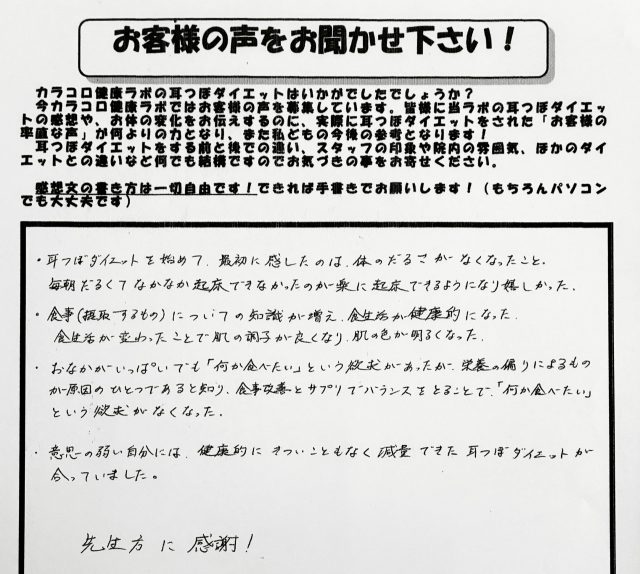 お客様の声をお聞かせ下さい！
カラコロ健康ラボの耳つぼダイエットはいかがでしたでしょうか？
今カラコロ健康ラボではお客様の声を募集しています。皆様に当ラボの耳つぼダイエッ
トの感想や、お体の変化をお伝えするのに、実際に耳つぼダイエットをされた「お客様の
率直な声」が何よりの力となり、また私どもの今後の参考となります！
耳つぼダイエットをする前と後での違い、スタッフの印象や院内の雰囲気、ほかのダイ
エットとの違いなど何でも結構ですのでお気づきの事をお寄せください。
感想文の書き方は一切自由です！できれば手書きでお願いします！（もちろんパソコン
でも大丈夫です）
・耳つぼダイエットを始めて、最初に感したのは、体のだるさがなくなったこと、
毎朝だるくてなかなか起床できなかったのが楽に起床できるようになり嬉しかった。
・食事(摂取するもの)についての知識が増え、食生活が健康的になった。
食生活が変わったことで肌の調子が良くなり、肌の色が明るくなった。
・おなかがいっぱいでも「何か食べたい」という欲求があったが、栄養の偏りによるもの
が原因のひとつであると知り、食事改善とサプリでバランスをとることで、「何か食べたい」
という欲求がなくなった。
・意思の弱い自分には、健康的にきついこともなく減量できた耳つぼダイエットが
合っていました。
先生方に感謝！